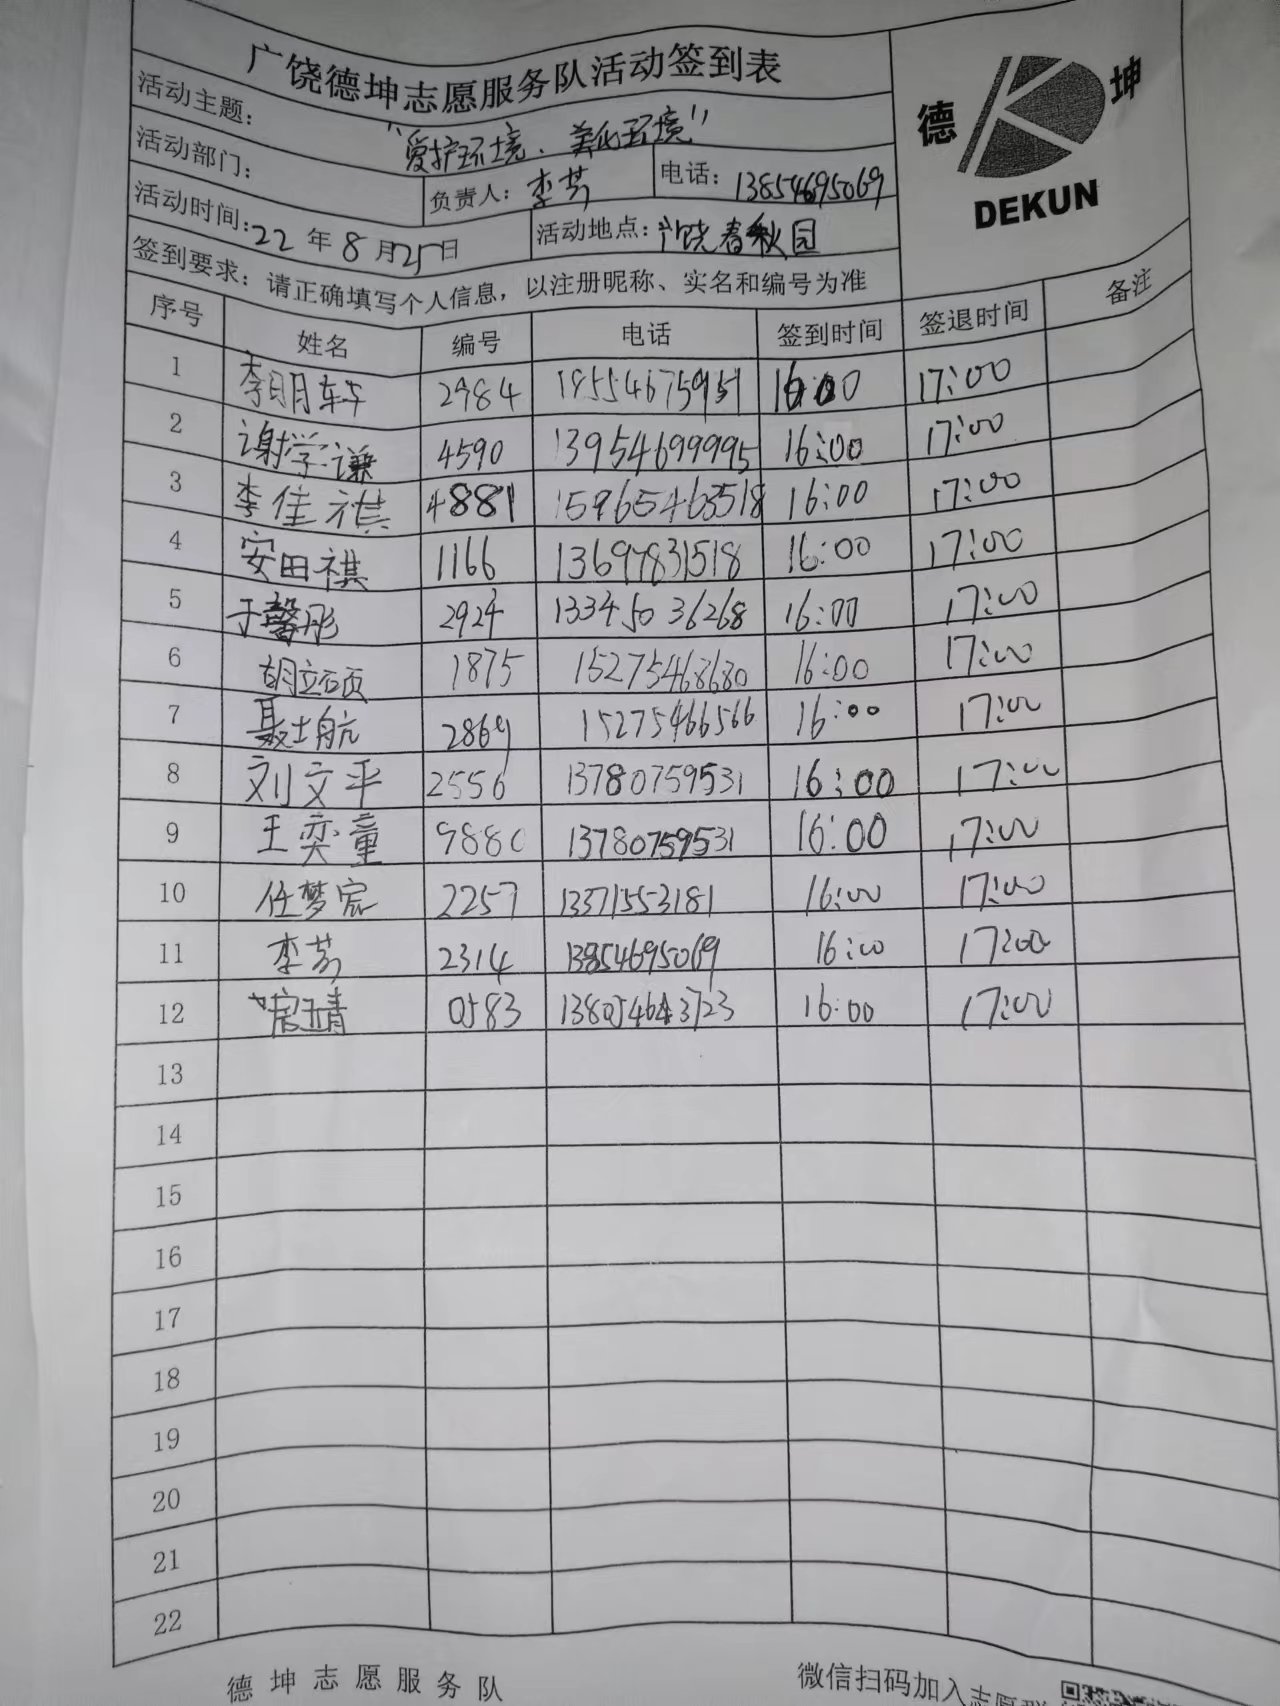 广饶德坤志愿服务队活动签到表
德 坤
DEKUN
活动主题: "爱护环境、美化环境"
活动部门: 负责人: 李芳 电话: 13854695069
活动时间: 22 年 8 月 25 日 活动地点: 广饶春秋园
签到要求: 请正确填写个人信息, 以注册昵称、实名和编号为准
序号 姓名 编号 电话 签到时间 签退时间 备注
1 李明轩 2984 18554675951 16:00 17:00
2 谢学谦 4590 13954699995 16:00 17:00
3 李佳祺 4881 15965463518 16:00 17:00
4 安田祺 1166 13697831518 16:00 17:00
5 于馨彤 2924 13345036268 16:00 17:00
6 1875 15275468680 16:00 17:00
7 聂士航 2869 15275466566 16:00 17:00
8 刘文平 2556 13780759531 16:00 17:00
9 王奕童 9880 13780759531 16:00 17:00
10 任梦宸 2257 13371553181 16:00 17:00
11 李芳 2314 13854695069 16:00 17:00
12 0583 16:00 17:00
13
14
15
16
17
18
19
20
21
22
德坤志愿服务队 微信扫码加入志愿群